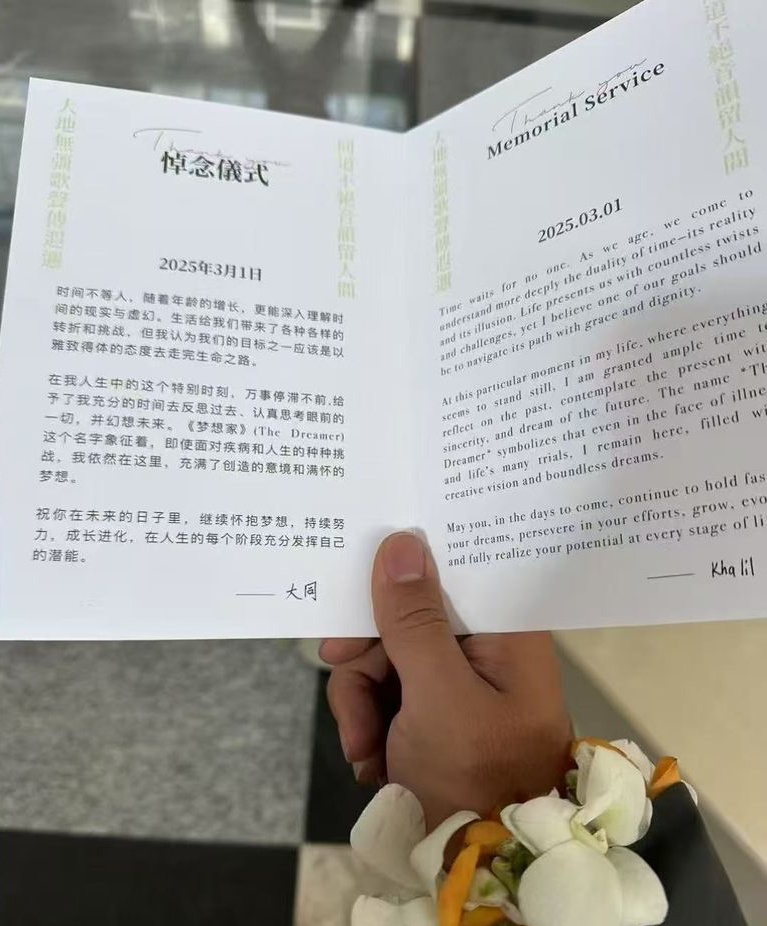 大地無疆歌聲傳遐邇
同道不絕音韻留人間
Thank you
悼念儀式
2025年3月1日
时间不等人，随着年龄的增长，更能深入理解时
间的现实与虚幻。生活给我们带来了各种各样的
转折和挑战，但我认为我们的目标之一应该是以
雅致得体的态度去走完生命之路。
在我人生中的这个特别时刻，万事停滞不前,给
予了我充分的时间去反思过去、认真思考眼前的
一切，并幻想未来。《梦想家》(The Dreamer)
这个名字象征着，即使面对疾病和人生的种种挑
战，我依然在这里，充满了创造的意境和满怀的
梦想。
祝你在未来的日子里，继续怀抱梦想，持续努
力，成长进化，在人生的每个阶段充分发挥自己
的潜能。
—— 大同
大地無疆歌聲傳遐邇
道不絕音韻留人間
Thank you
Memorial Service
2025.03.01
Time waits for no one. As we age, we come to
understand more deeply the duality of time—its reality
and its illusion. Life presents us with countless twists
and challenges, yet I believe one of our goals should
be to navigate its path with grace and dignity.
At this particular moment in my life, where everything
seems to stand still, I am granted ample time to
reflect on the past, contemplate the present wit
sincerity, and dream of the future. The name *Th
Dreamer* symbolizes that even in the face of illne
and life's many trials, I remain here, filled wi
creative vision and boundless dreams.
May you, in the days to come, continue to hold fas
your dreams, persevere in your efforts, grow, evo
and fully realize your potential at every stage of li
—— Khalil